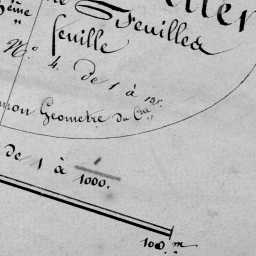 3ème
Feuilles
feuille
N.º 4. de 1 à 125.
Géomètre du Cad.
de 1 à 1/1000.
100. m